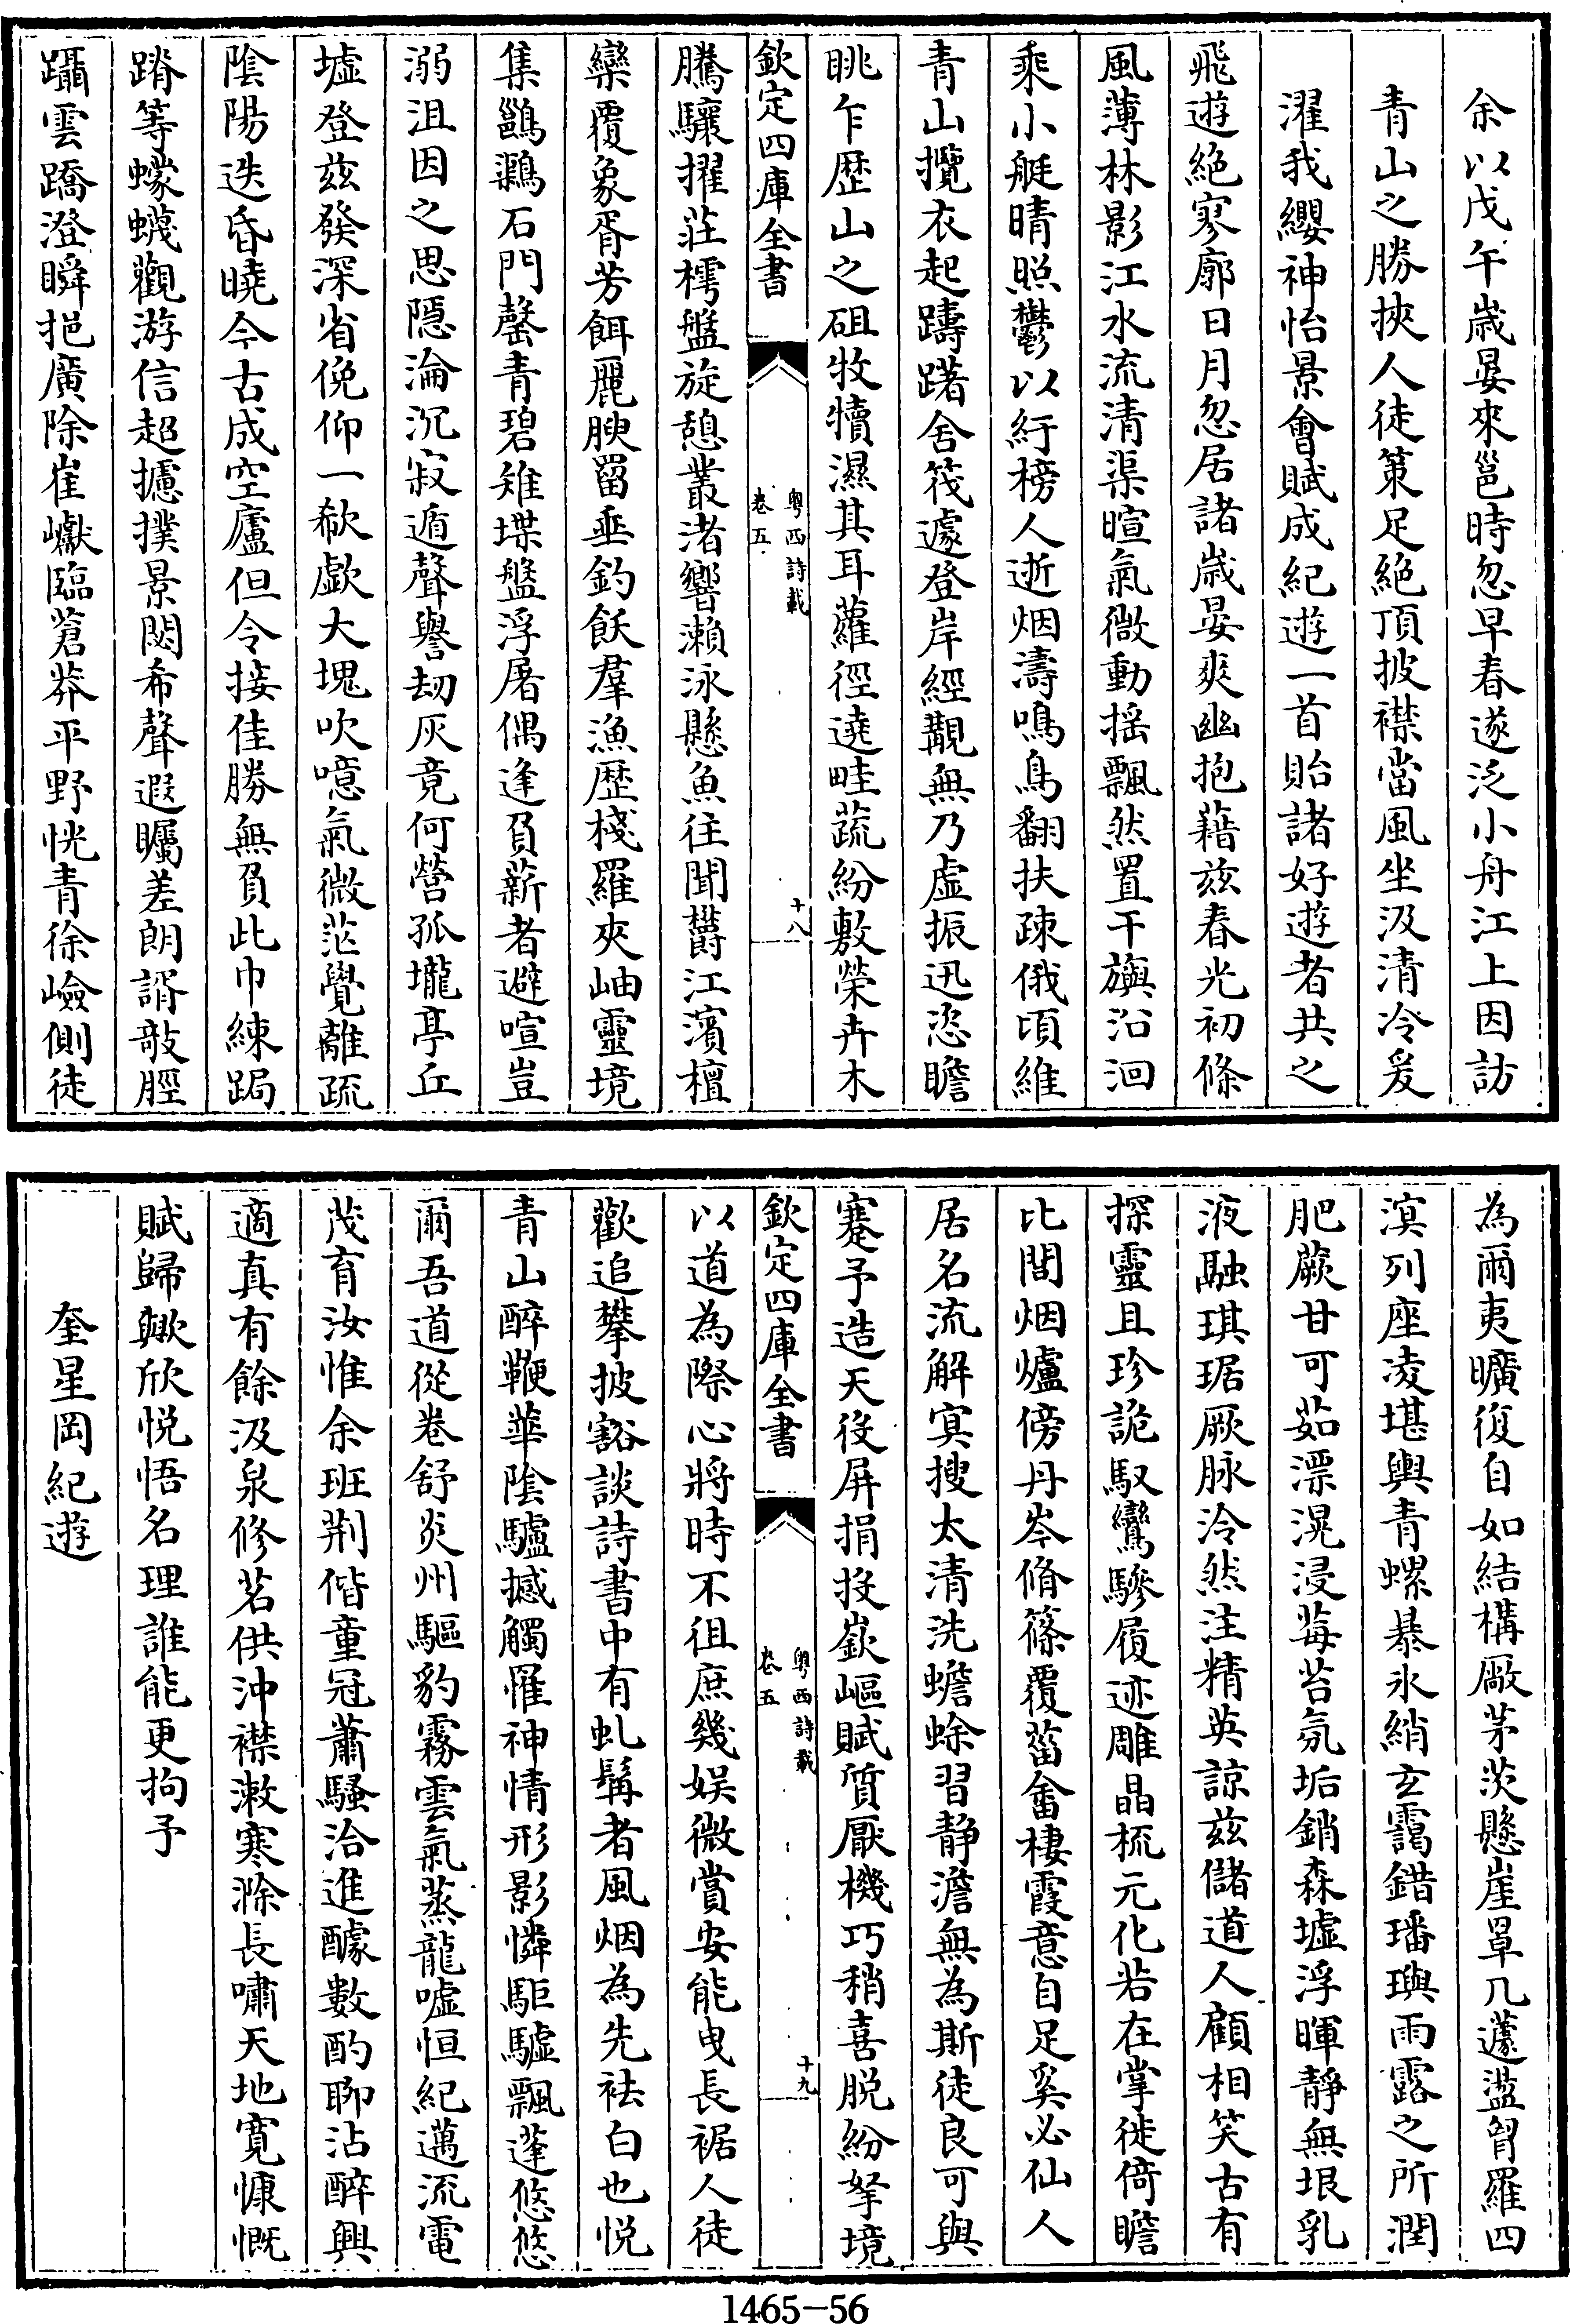 余以戊午歲晏來邕時忽早春遂泛小舟江上因訪
青山之勝挾人徒策足絶頂披襟當風坐汲清冷爰
濯我纓神怡景會賦成紀遊一首貽諸好遊者共之
飛遊絶寥廓日月忽居諸歲晏爽幽抱藉兹春光初條
風薄林影江水流清渠暄氣微動揺飄然置干旟沿洄
乘小艇晴照鬱以紆榜人逝烟濤鳴鳥翻扶疎俄頃維
青山攬衣起躊躇舍筏遽登岸經覯無乃虛振迅恣瞻
眺乍歴山之砠牧犢濕其耳蘿徑遶畦蔬紛敷榮卉木
欽定四庫全書
粤西詩載
卷五
十八
騰驤擢莊樗盤旋憩叢渚響瀨泳懸魚往聞欝江濱檀
欒覆象胥芳餌麗腴罶垂釣飫羣漁歴棧羅夾岫靈境
集鷀鸂石門罄青碧雉堞盤浮屠偶逢負薪者避喧豈
溺沮因之思隱淪沉寂遁聲譽刼灰竟何營孤壠亭丘
墟登兹發深省俛仰一欷歔大塊吹噫氣微茫覺離疏
陰陽迭昏曉今古成空廬但令接佳勝無負此巾練跼
蹐等蠓蠛觀游信超攄撲景閟希聲遐矚差朗諝敲脛
躡雲蹻澄瞬挹廣除崔巘臨蒼莽平野恍青徐嶮側徒
為爾夷曠復自如結構厰茅茨懸崖罩几蘧溘胷羅四
溟列座凌堪輿青螺暴氷綃玄靄錯璠璵雨露之所潤
肥蕨甘可茹漂滉浸莓苔氛垢銷森墟浮暉靜無垠乳
液融琪琚厥脉泠然注精英諒兹儲道人顧相笑古有
探靈且珍詭馭鸞驂履迹雕晶梳元化若在掌徙倚瞻
比閭烟爐傍丹岑脩篠覆菑畬棲霞意自足奚必仙人
居名流解㝠搜太清洗蟾蜍習静澹無為斯徒良可與
蹇予造天役屏捐投嶔嶇賦質厭機巧稍喜脱紛挐境
欽定四庫全書
粤西詩載
卷五
十九
以道為際心將時不徂庶幾娱微賞安能曳長裾人徒
歡追攀披豁談詩書中有虬髯者風烟為先袪白也悦
青山醉鞭華陰驢撼觸罹神情形影憐駏驉飄蓬悠悠
爾吾道從卷舒炎州驅豹霧雲氣蒸龍嘘恒紀邁流電
茂育汝惟余班荆偕童冠蕭騷洽進醵數酌聊沾醉興
適真有餘汲泉修茗供沖襟漱寒滁長嘯天地寛慷慨
賦歸歟欣悦悟名理誰能更拘予
奎星岡紀遊
1465-56